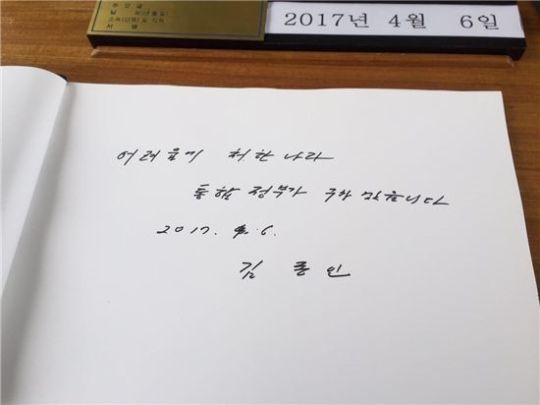 2017년 4월 6일
어려움에 처한 나라
통합 정부가 구하겠습니다
2017. 4. 6.
김종인